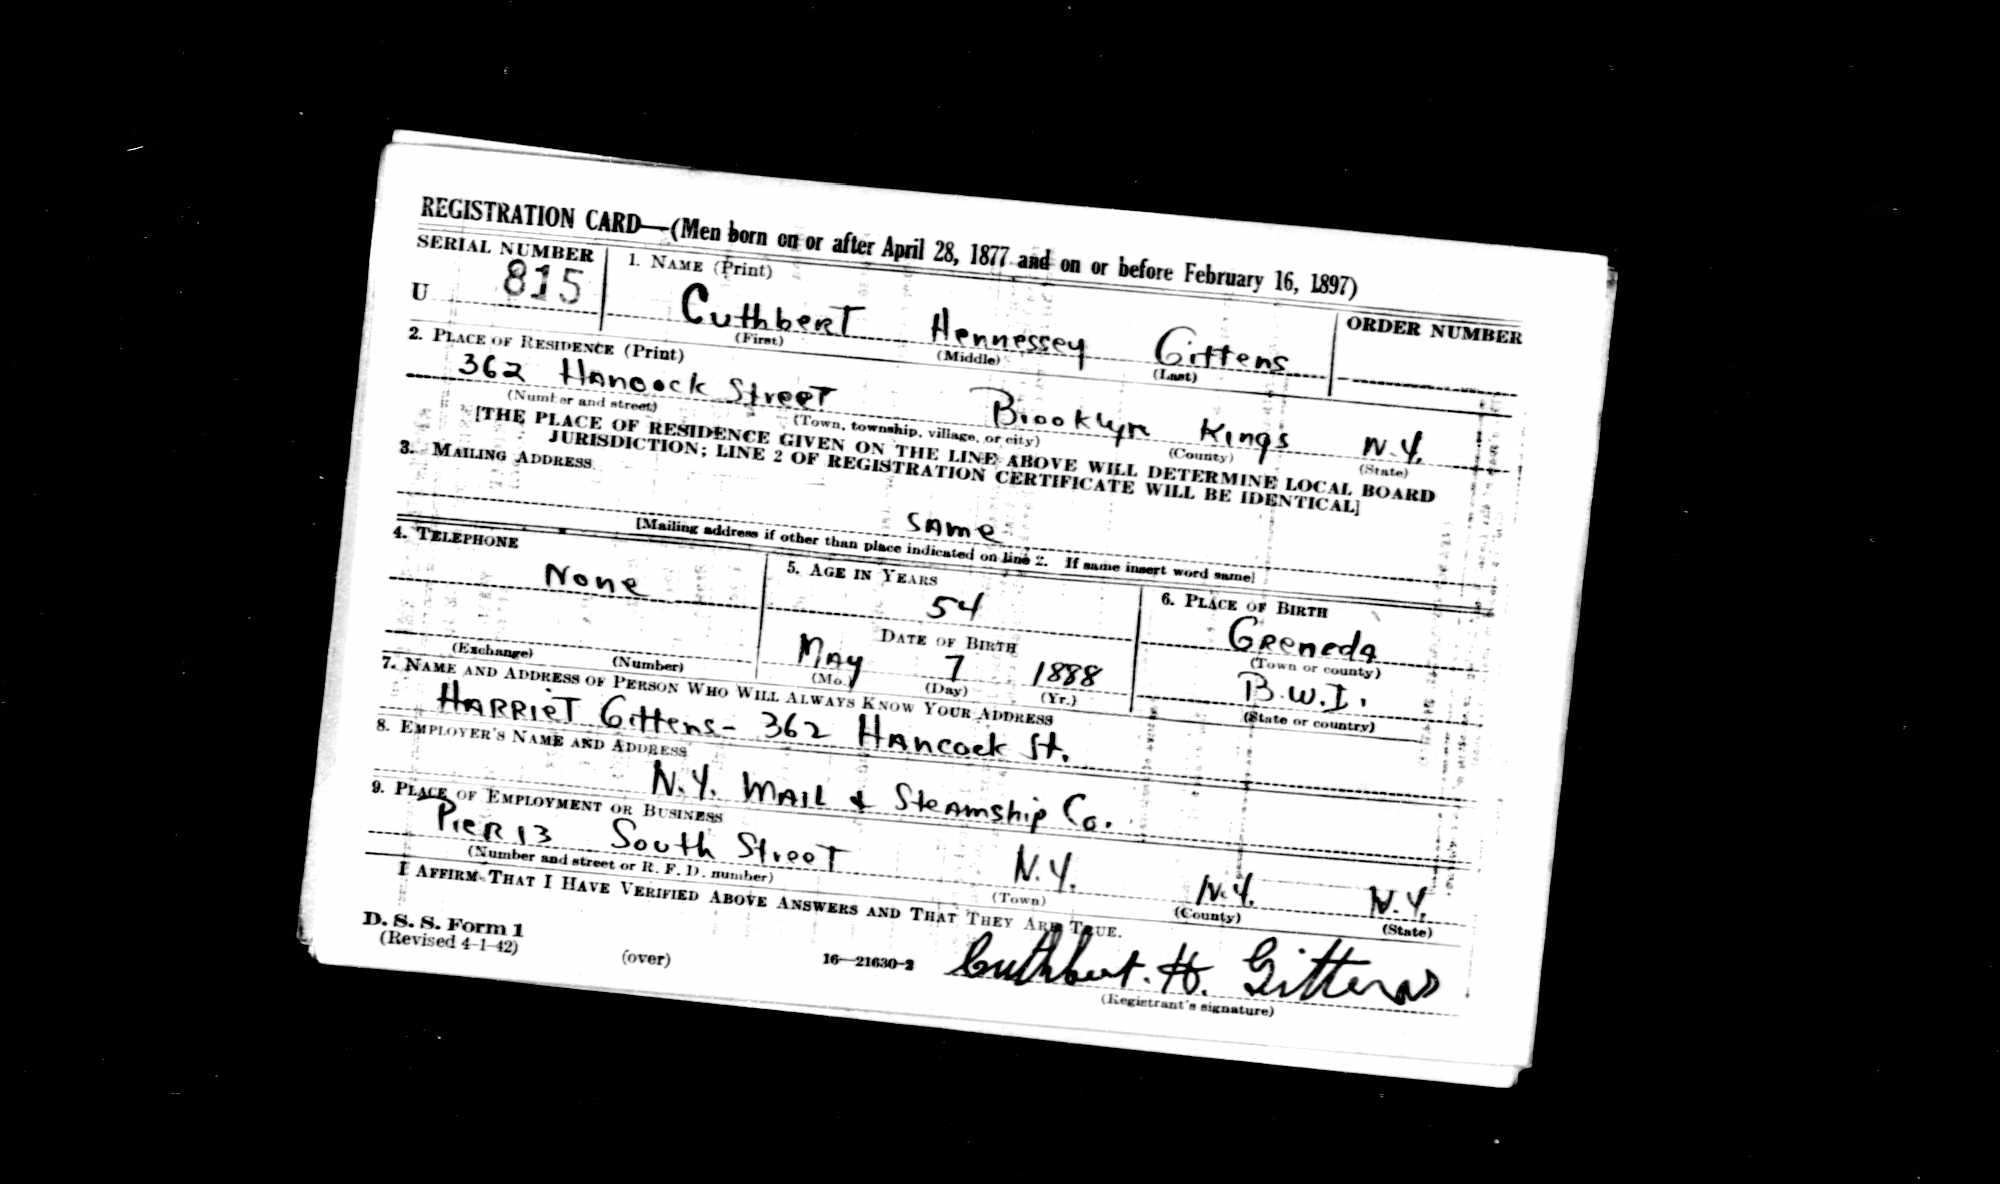 REGISTRATION CARD—(Men born on or after April 28, 1877 and on or before February 16, 1897)
SERIAL NUMBER
1. NAME (Print)
ORDER NUMBER
U 815
Cuthbert Hennessey Gittens
(First) (Middle) (Last)
2. PLACE OF RESIDENCE (Print)
362 Hancock Street Brooklyn Kings N.Y.
(Number and street) (Town, township, village, or city) (County) (State)
[THE PLACE OF RESIDENCE GIVEN ON THE LINE ABOVE WILL DETERMINE LOCAL BOARD
JURISDICTION; LINE 2 OF REGISTRATION CERTIFICATE WILL BE IDENTICAL]
3. MAILING ADDRESS
Same
[Mailing address if other than place indicated on line 2. If same insert word same]
4. TELEPHONE
None
(Exchange) (Number)
5. AGE IN YEARS
54
DATE OF BIRTH
May 7 1888
(Mo.) (Day) (Yr.)
6. PLACE OF BIRTH
Greneda
(Town or county)
B.W.I.
(State or country)
7. NAME AND ADDRESS OF PERSON WHO WILL ALWAYS KNOW YOUR ADDRESS
Harriet Gittens- 362 Hancock St.
8. EMPLOYER'S NAME AND ADDRESS
N.Y. Mail & Steamship Co.
9. PLACE OF EMPLOYMENT OR BUSINESS
Pier 13 South Street N.Y. N.Y. N.Y.
(Number and street or R. F. D. number) (Town) (County) (State)
I AFFIRM THAT I HAVE VERIFIED ABOVE ANSWERS AND THAT THEY ARE TRUE.
D. S. S. Form 1
(Revised 4-1-42)
(over)
16—21630-2
Cuthbert. H. Gittens
(Registrant's signature)